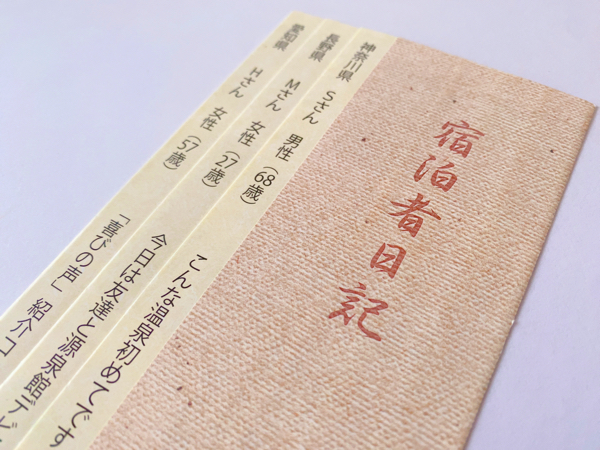 宿泊者日記
神奈川県 Sさん 男性(68歳) こんな温泉初めてです
長野県 Mさん 女性(27歳) 今日は友達と源泉館デビ
愛知県 Hさん 女性(57歳) 「喜びの声」紹介コ